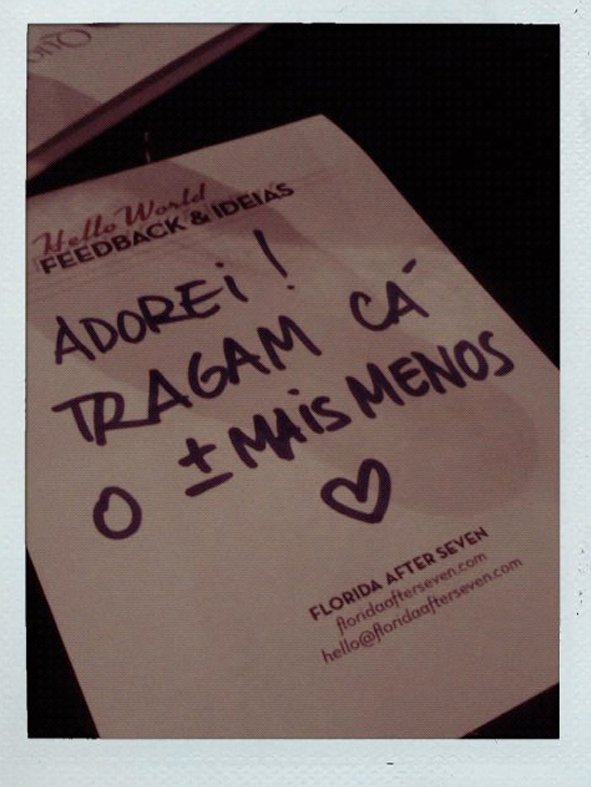 Hello World
FEEDBACK & IDEIAS
ADOREi!
TRAGAM CÁ
O ± MAiS MENOS
FLORIDA AFTER SEVEN
floridaafterseven.com
hello@floridaafterseven.com